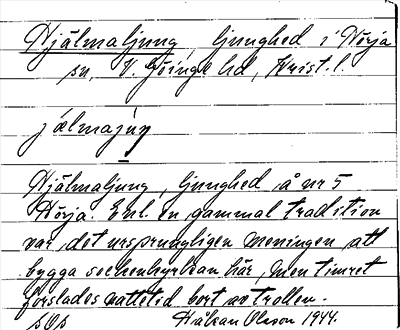 Hjälmaljung, ljunghed i Nörja
sn, V. Göinge hd, Krist. l.
jælmajuŋ
Hjälmaljung, ljunghed å nr 5
Nörja. Enl. en gammal tradition
var det ursprungligen meningen att
bygga sockenkyrkan här, men timret
forslades nattetid bort av trollen.
Håkan Olsson 1944.